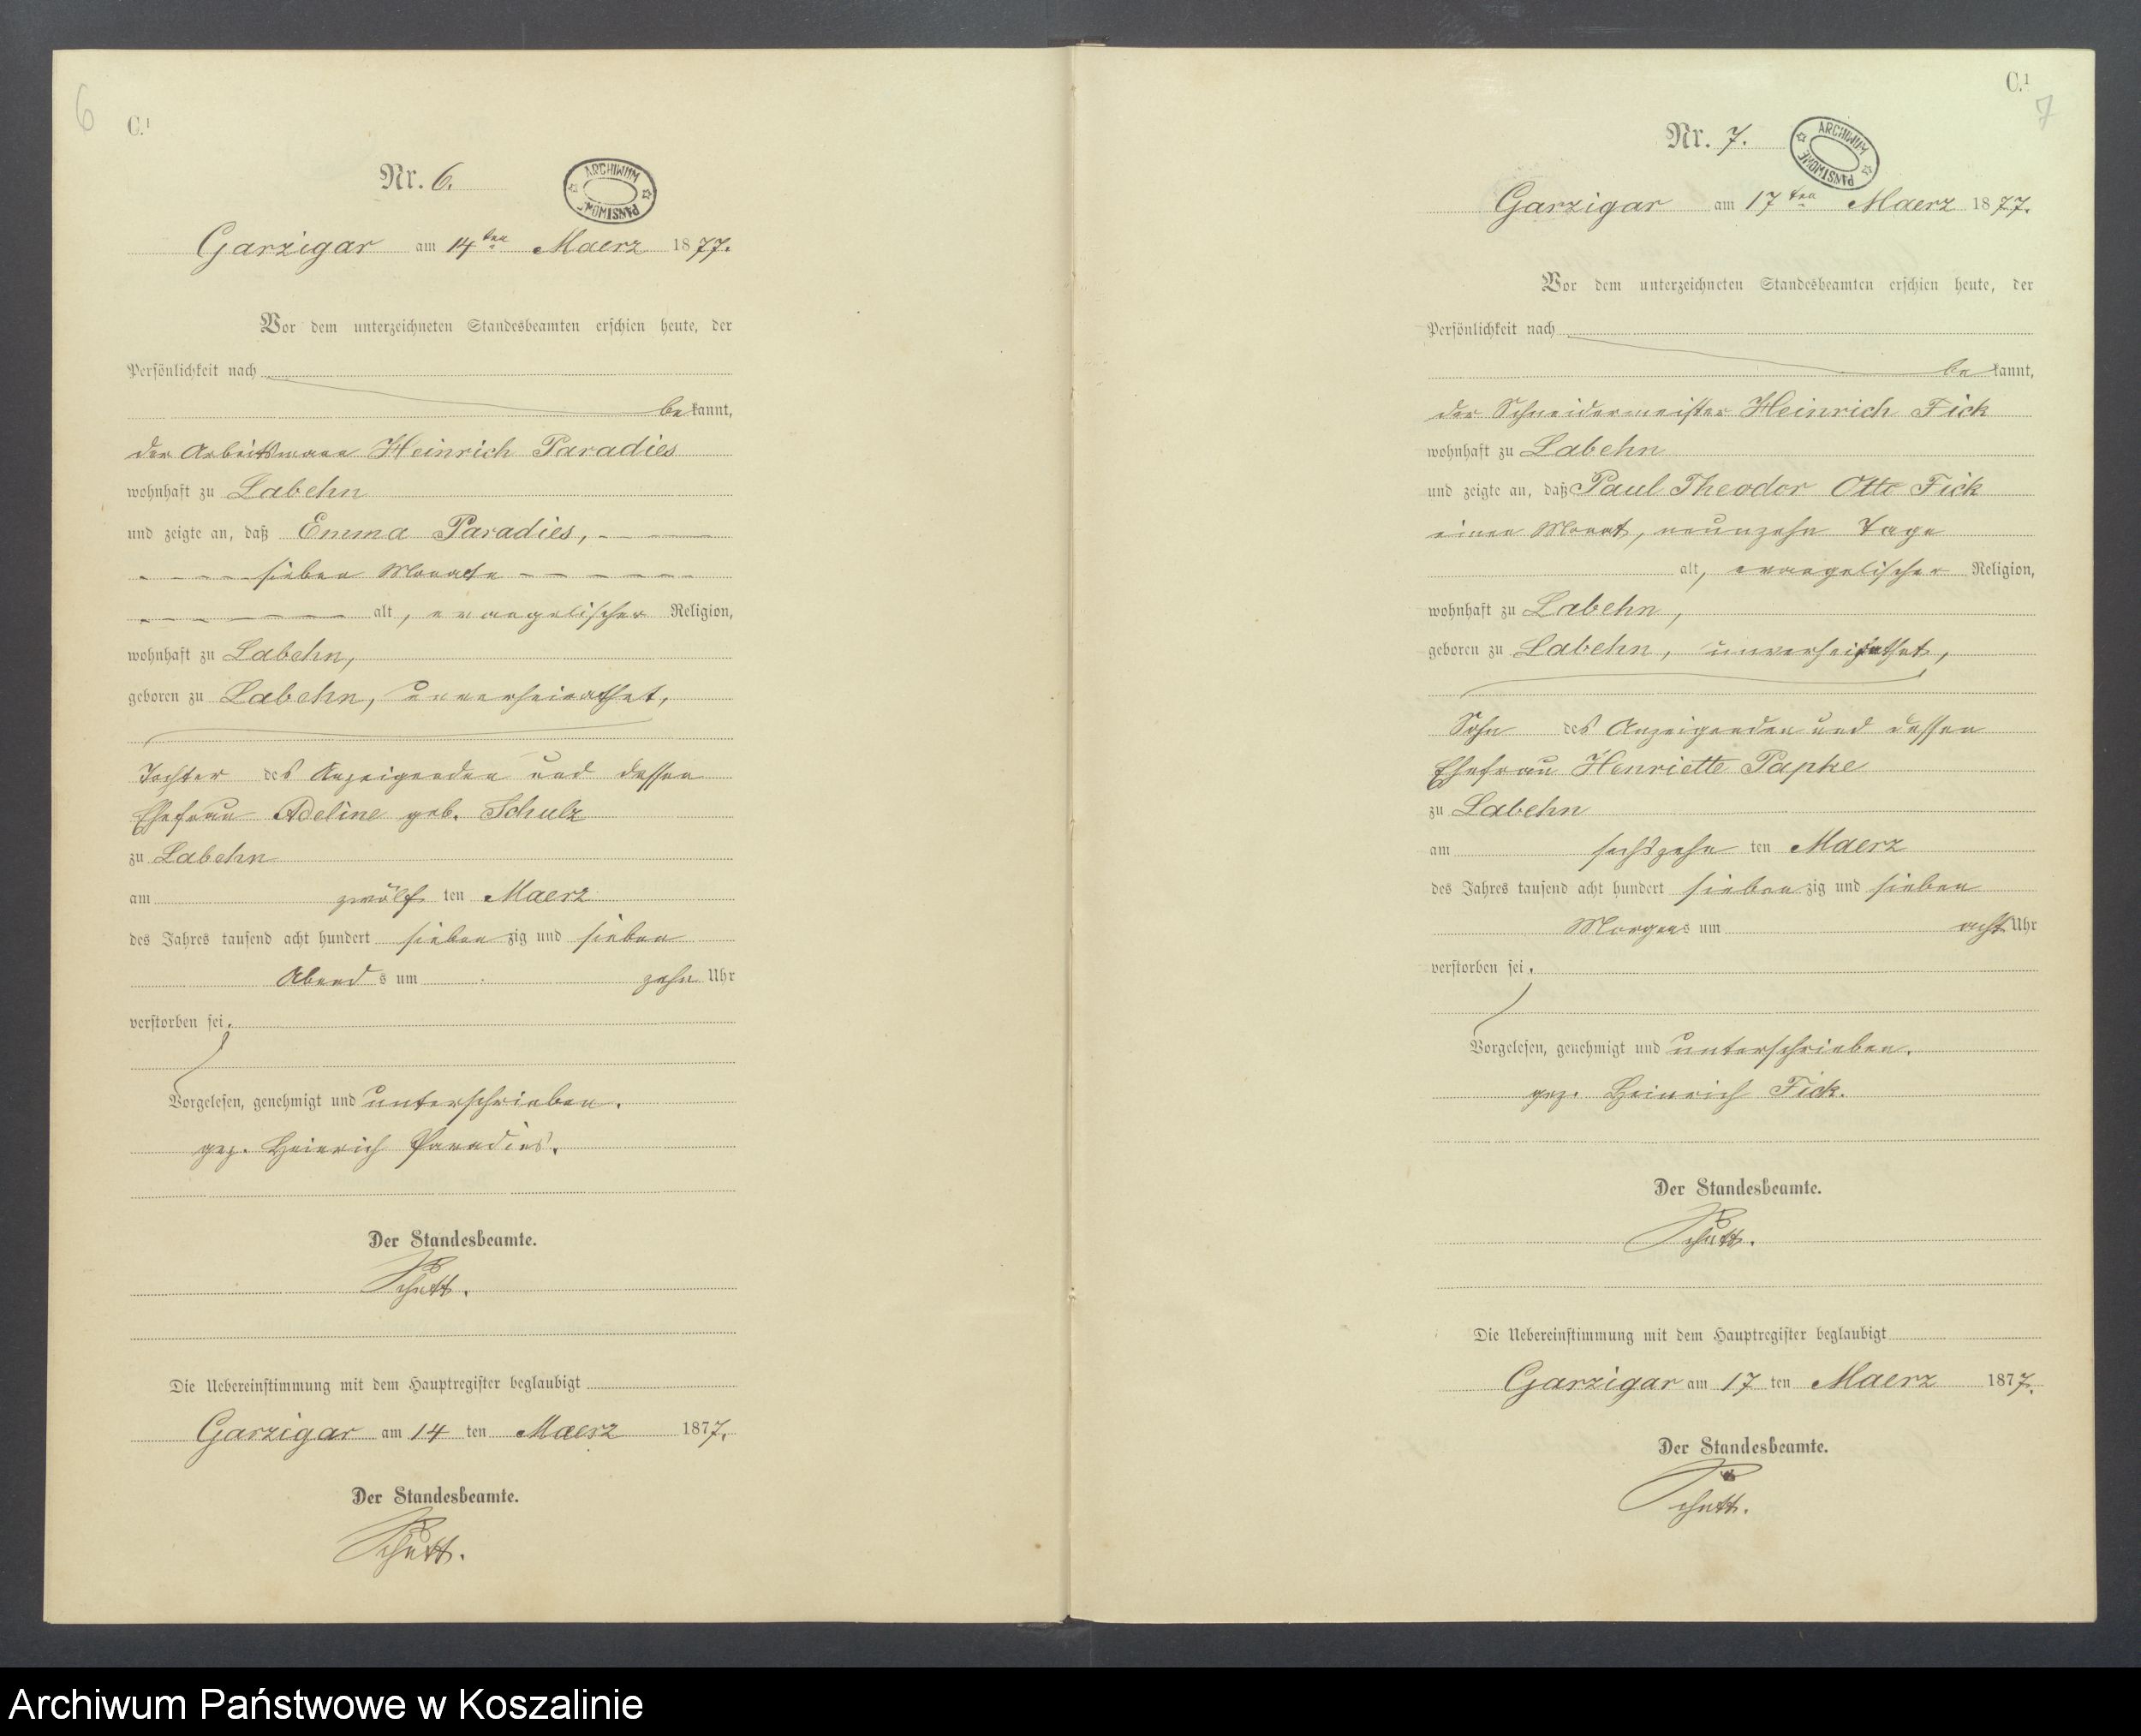 6
C.¹
Nr. 6.
ARCHIWUM PAŃSTWOWE
Garzigar am 14ten Maerz 1877.
Vor dem unterzeichneten Standesbeamten erschien heute, der
Persönlichkeit nach
bekannt,
der Arbeitsmann Heinrich Paradies
wohnhaft zu Labehn
und zeigte an, daß Emma Paradies,
sieben Monate
alt, evangelischer Religion,
wohnhaft zu Labehn,
geboren zu Labehn, unverheirathet,
Tochter des Anzeigenden und dessen
Ehefrau Adeline geb. Schulz
zu Labehn
am zwölf ten Maerz
des Jahres tausend acht hundert sieben zig und sieben
Abend s um zehn Uhr
verstorben sei.
Vorgelesen, genehmigt und unterschrieben.
gez. Heinrich Paradies.
Der Standesbeamte.
Schütt.
Die Uebereinstimmung mit dem Hauptregister beglaubigt
Garzigar am 14 ten Maerz 1877.
Der Standesbeamte.
Schütt.
C.¹
7
Nr. 7.
ARCHIWUM PAŃSTWOWE
Garzigar am 17ten Maerz 1877.
Vor dem unterzeichneten Standesbeamten erschien heute, der
Persönlichkeit nach
bekannt,
der Schneidermeister Heinrich Fick
wohnhaft zu Labehn
und zeigte an, daß Paul Theodor Otto Fick
einen Monat, neunzehn Tage
alt, evangelischer Religion,
wohnhaft zu Labehn,
geboren zu Labehn, unverheirathet,
Sohn des Anzeigenden und dessen
Ehefrau Henriette Papke
zu Labehn
am sechszehn ten Maerz
des Jahres tausend acht hundert sieben zig und sieben
Morgens um acht Uhr
verstorben sei.
Vorgelesen, genehmigt und unterschrieben.
gez. Heinrich Fick.
Der Standesbeamte.
Schütt.
Die Uebereinstimmung mit dem Hauptregister beglaubigt
Garzigar am 17 ten Maerz 1877.
Der Standesbeamte.
Schütt.
Archiwum Państwowe w Koszalinie